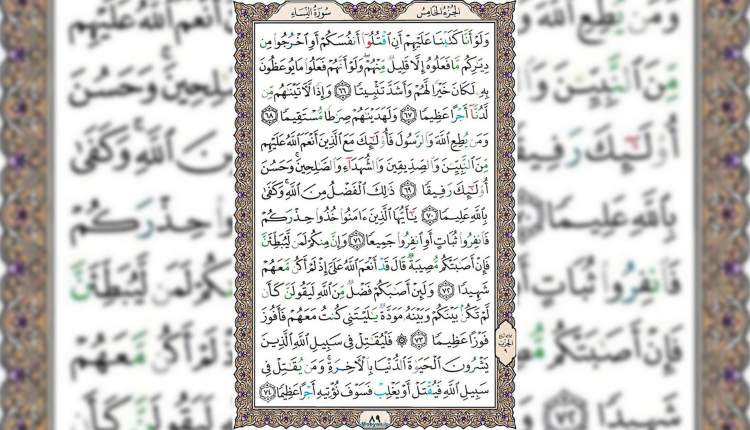 سُورَةُ النِّسَاءِ
الجُزْءُ الخَامِسُ
وَلَوْ أَنَّا كَتَبْنَا عَلَيْهِمْ أَنِ اقْتُلُوا أَنفُسَكُمْ أَوِ اخْرُجُوا مِن
دِيَٰرِكُم مَّا فَعَلُوهُ إِلَّا قَلِيلٌ مِّنْهُمْ ۖ وَلَوْ أَنَّهُمْ فَعَلُوا مَا يُوعَظُونَ
بِهِ لَكَانَ خَيْرًا لَّهُمْ وَأَشَدَّ تَثْبِيتًا ٦٦ وَإِذًا لَّآتَيْنَٰهُم مِّن
لَّدُنَّا أَجْرًا عَظِيمًا ٦٧ وَلَهَدَيْنَٰهُمْ صِرَٰطًا مُّسْتَقِيمًا ٦٨
وَمَن يُطِعِ اللَّهَ وَالرَّسُولَ فَأُو۟لَٰٓئِكَ مَعَ الَّذِينَ أَنْعَمَ اللَّهُ عَلَيْهِم
مِّنَ النَّبِيِّـۧنَ وَالصِّدِّيقِينَ وَالشُّهَدَآءِ وَالصَّٰلِحِينَ ۚ وَحَسُنَ
أُو۟لَٰٓئِكَ رَفِيقًا ٦٩ ذَٰلِكَ الْفَضْلُ مِنَ اللَّهِ ۚ وَكَفَىٰ
بِاللَّهِ عَلِيمًا ٧٠ يَٰٓأَيُّهَا الَّذِينَ ءَامَنُوا خُذُوا حِذْرَكُمْ
فَانفِرُوا ثُبَاتٍ أَوِ انفِرُوا جَمِيعًا ٧١ وَإِنَّ مِنكُمْ لَمَن لَّيُبَطِّئَنَّ
فَإِنْ أَصَٰبَتْكُم مُّصِيبَةٌ قَالَ قَدْ أَنْعَمَ اللَّهُ عَلَيَّ إِذْ لَمْ أَكُن مَّعَهُمْ
شَهِيدًا ٧٢ وَلَئِنْ أَصَٰبَكُمْ فَضْلٌ مِّنَ اللَّهِ لَيَقُولَنَّ كَأَن
لَّمْ تَكُنۢ بَيْنَكُمْ وَبَيْنَهُ مَوَدَّةٌ يَٰلَيْتَنِي كُنتُ مَعَهُمْ فَأَفُوزَ
فَوْزًا عَظِيمًا ٧٣ ۞ فَلْيُقَٰتِلْ فِي سَبِيلِ اللَّهِ الَّذِينَ
يَشْرُونَ الْحَيَوٰةَ الدُّنْيَا بِالْءَاخِرَةِ ۚ وَمَن يُقَٰتِلْ فِي
سَبِيلِ اللَّهِ فَيُقْتَلْ أَوْ يَغْلِبْ فَسَوْفَ نُؤْتِيهِ أَجْرًا عَظِيمًا ٧٤
٨٩